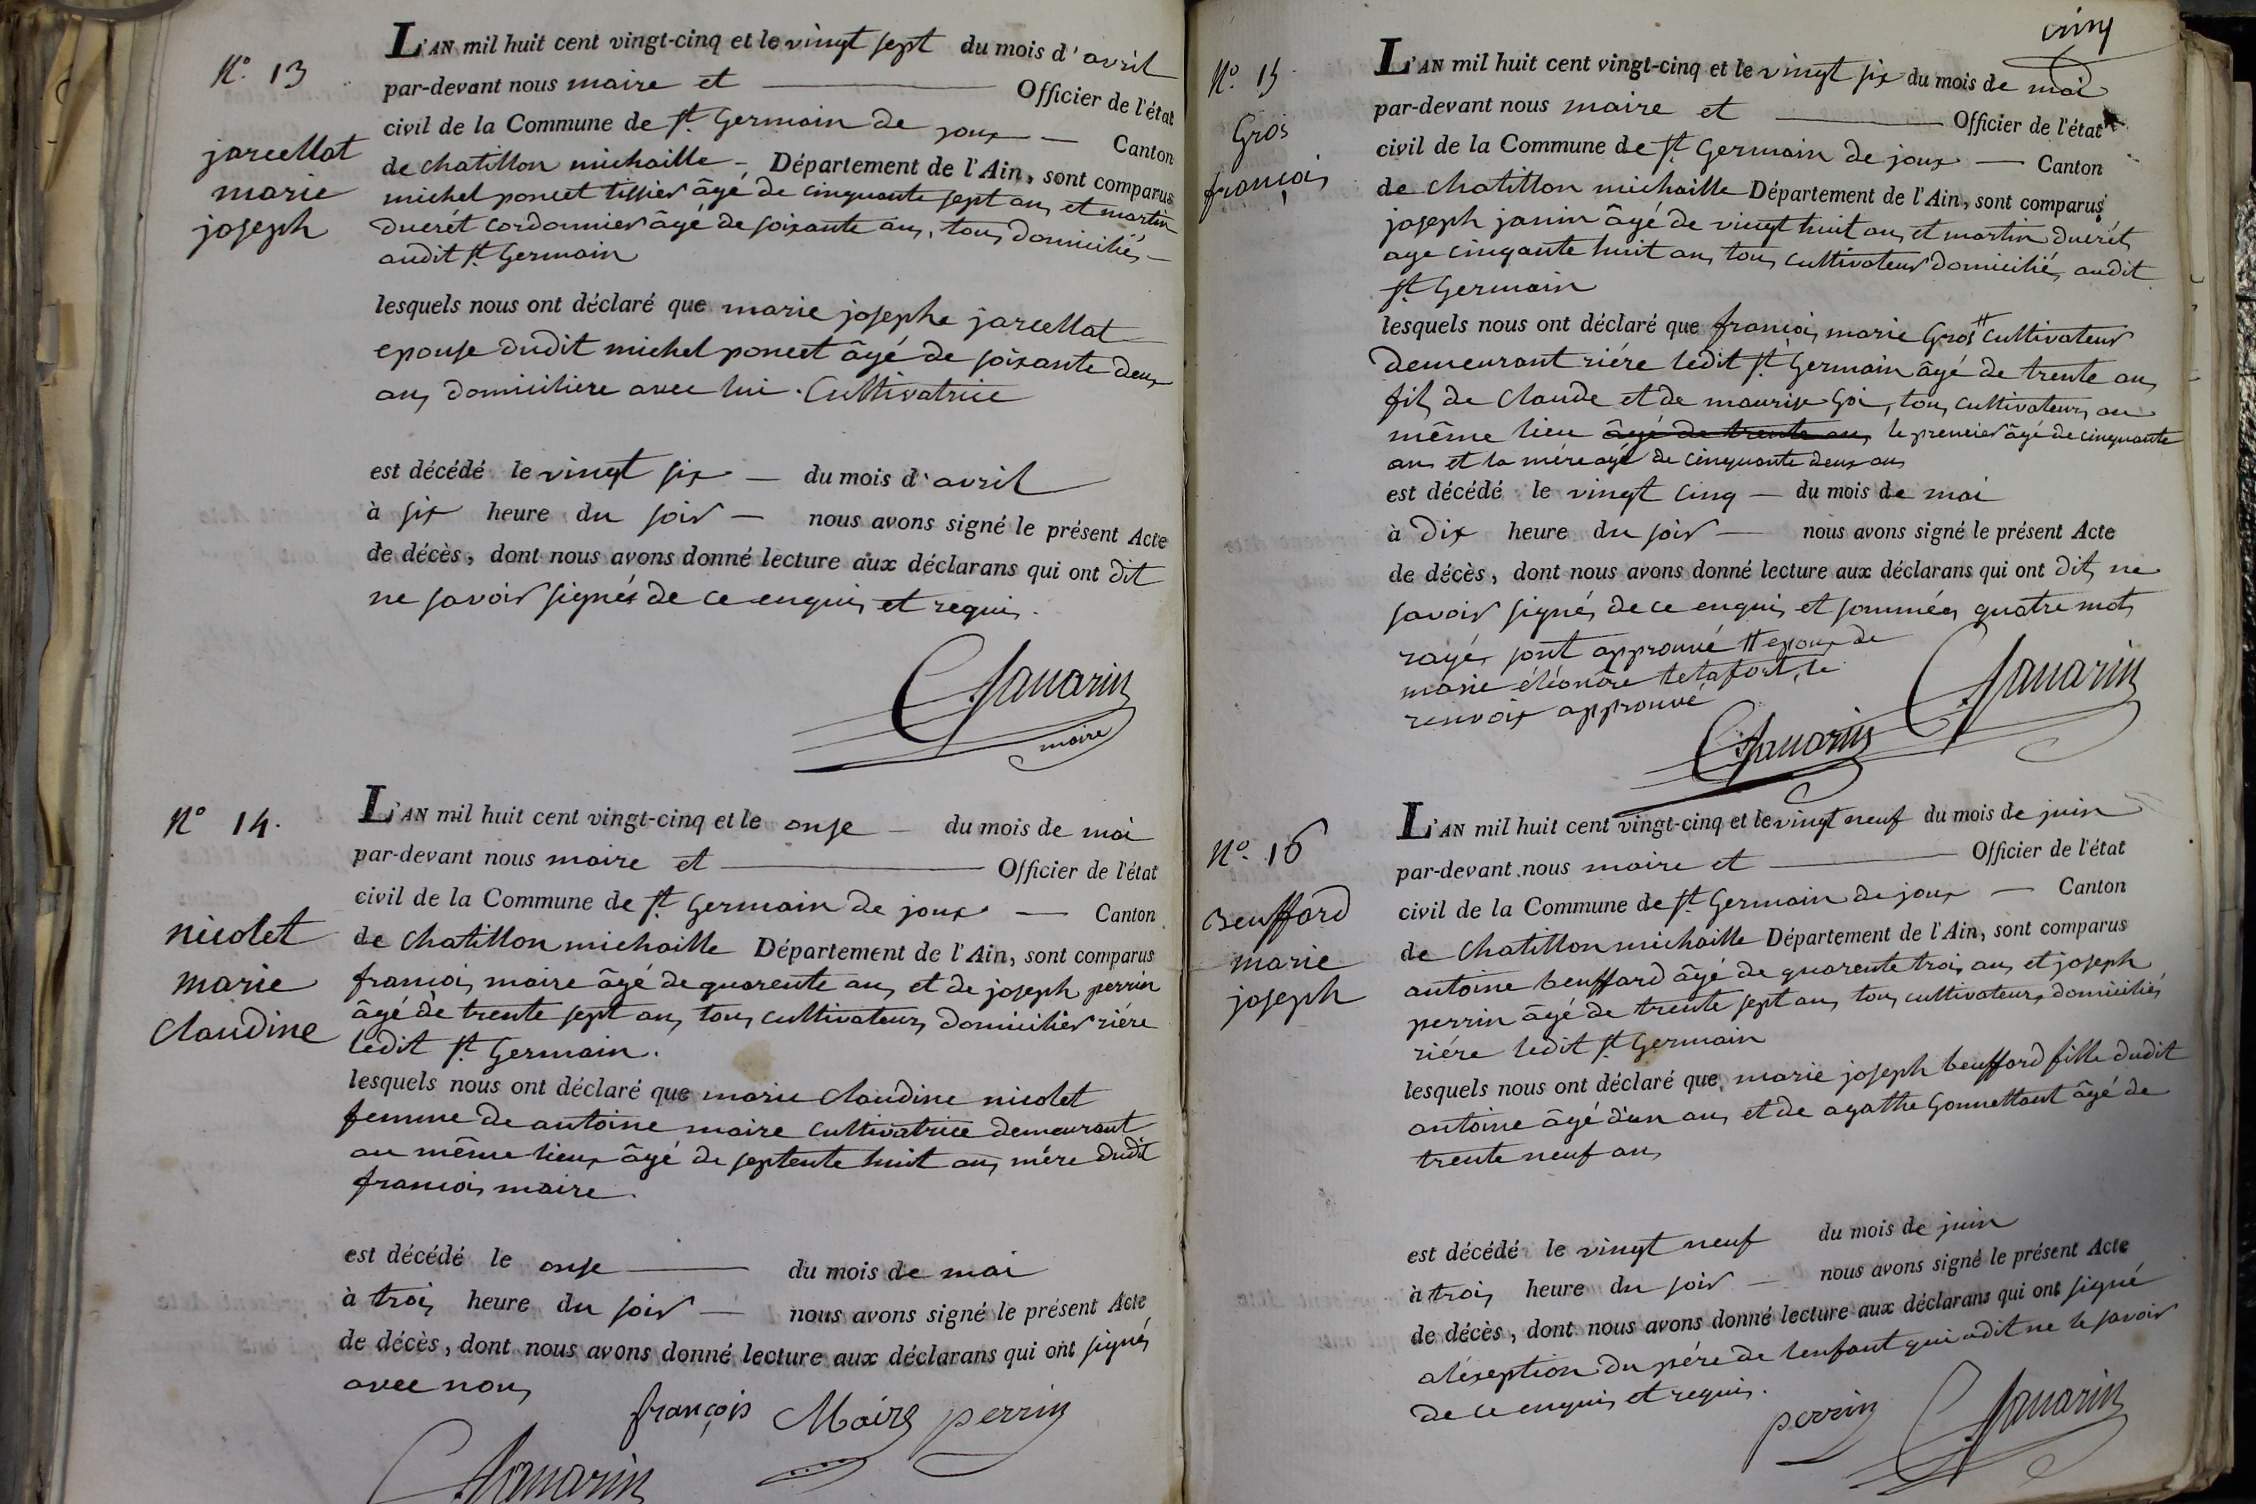 N.º 13
jarcellat
marie
joseph
L'AN mil huit cent vingt-cinq et le vingt sept du mois d'avril
par-devant nous maire et Officier de l'état
civil de la Commune de St. Germain de joux — Canton
de chatillon michaille — Département de l'Ain, sont comparus
michel poncet tissier âgé de cinquante sept ans et martin
ducrét cordonnier âgé de soixante ans, tous domiciliés —
audit St. Germain
lesquels nous ont déclaré que marie josephe jarcellat
epouse dudit michel poncet âgé de soixante deux
ans domiciliere avec lui . Cultivatrice
est décédé le vingt six — du mois d'avril
à six heure du soir — nous avons signé le présent Acte
de décès, dont nous avons donné lecture aux déclarans qui ont dit
ne savoir signés de ce enquis et requis.
maire
N.º 14.
nicolet
marie
claudine
L'AN mil huit cent vingt-cinq et le onse — du mois de mai
par-devant nous maire et Officier de l'état
civil de la Commune de St. Germain de joux — Canton
de chatillon michaille Département de l'Ain, sont comparus
francois maire âgé de quarente ans et de joseph perrin
âgé de trente sept ans tous cultivateurs domicilier riére
ledit St. Germain.
lesquels nous ont déclaré que marie claudine nicolet
femme de antoine maire cultivatrice demeurant
au même lieux âgé de septente huit ans mére dudit
francois maire.
est décédé le onse — du mois de mai
à trois heure du soir — nous avons signé le présent Acte
de décès, dont nous avons donné lecture aux déclarans qui ont signés
avec nous
françois Maire perrin
cinq
N.º 15
Gros
francois
L'AN mil huit cent vingt-cinq et le vingt six du mois de mai
par-devant nous maire et Officier de l'état
civil de la Commune de St. Germain de joux — Canton
de chatillon michaille Département de l'Ain, sont comparus
joseph janin âgé de vingt huit ans et martin ducrét
age cinqante huit ans tous cultivateur domiciliés audit
St. Germain
lesquels nous ont déclaré que francois marie Gros # cultivateur
demeurant riére ledit St. Germain âgé de trente ans
fils de claude et de maurise Goi, tous cultivateurs au
même lieu âgé de trente ans le premier âgé de cinquante
ans et la mére agé de cinquante deux ans
est décédé le vingt cinq — du mois de mai
à dix heure du soir — nous avons signé le présent Acte
de décès, dont nous avons donné lecture aux déclarans qui ont dits ne
savoir signés de ce enquis et sommées quatre mots
rayés sont approuvé # epoux de
marie éléonore tetafort, le
renvoix approuvé
N.º 16
Beufford
marie
joseph
L'AN mil huit cent vingt-cinq et le vingt neuf du mois de juin
par-devant nous maire et Officier de l'état
civil de la Commune de St. Germain de joux — Canton
de chatillon michaille Département de l'Ain, sont comparus
antoine beufford âgé de quarente trois ans et joseph
perrin âgé de trente sept ans tous cultivateurs domiciliés
riére ledit St. Germain
lesquels nous ont déclaré que marie joseph beufford fille dudit
antoine âgé d'un ans et de agathe Gonnettant âgé de
trente neuf ans
est décédé le vingt neuf du mois de juin
à trois heure du soir — nous avons signé le présent Acte
de décès, dont nous avons donné lecture aux déclarans qui ont signé
a léxeption du pére de lenfant qui a dit ne le savoir
de ce enquis et requis.
perrin